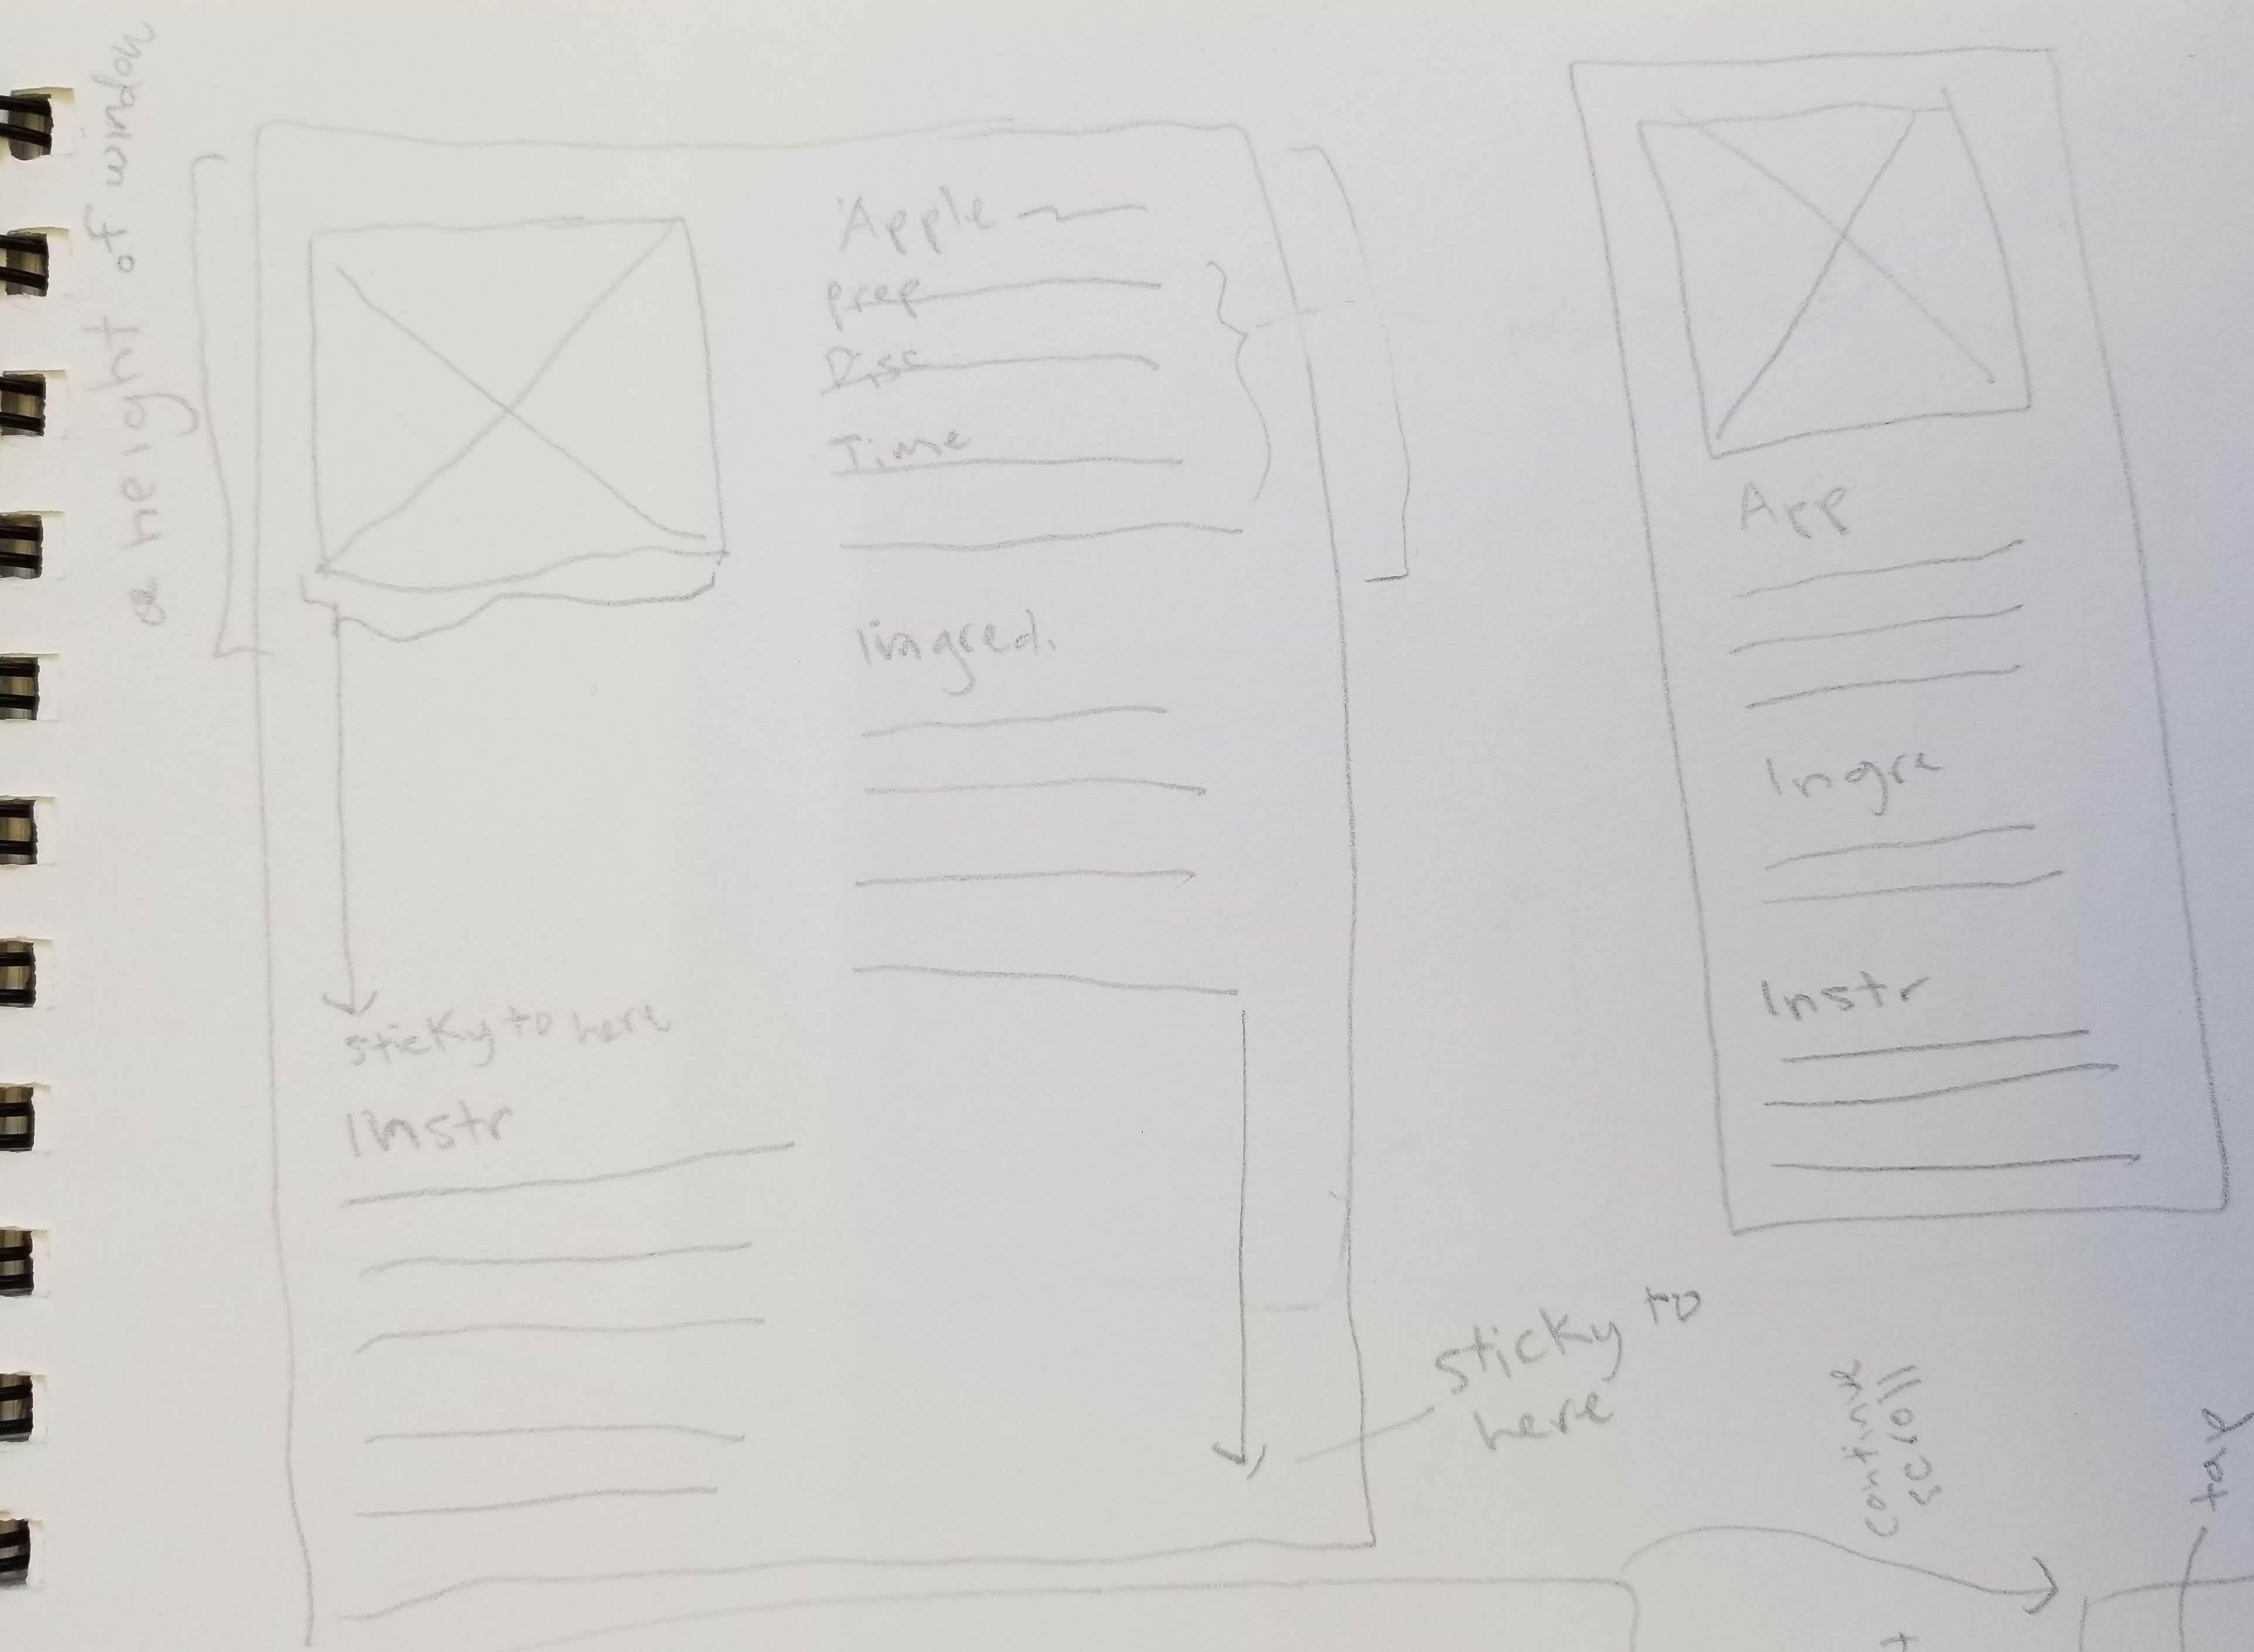 height of window
Apple
prep
Disc
Time
Ingred.
sticky to here
Instr
sticky to
here
App
Ingre
Instr
continue
scroll
tap